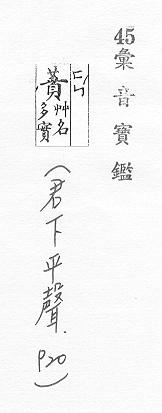 45彙音寶鑑
蕡艸名
多實
(君下平聲.P20)